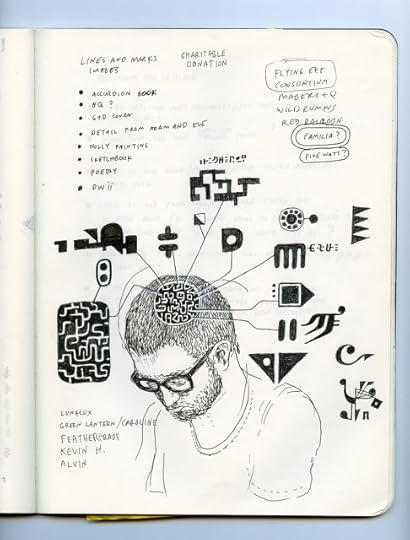 LINES AND MARKS
IMAGES
CHARITABLE
DONATION
ACCORDION BOOK
BQ ?
G+D COVER
DETAIL FROM ADAM AND EVE
HOLLY PAINTING
SKETCHBOOK
POETRY
DWiii
FLYING EYE
CONSORTIUM
MAGERS + Q
WILD RUMPUS
RED BALLOON
FAMILIA ?
FIVE WATT ?
LUNALUX
GREEN LANTERN / CAROLINE
FEATHERPROOF
KEVIN H.
ALVIN